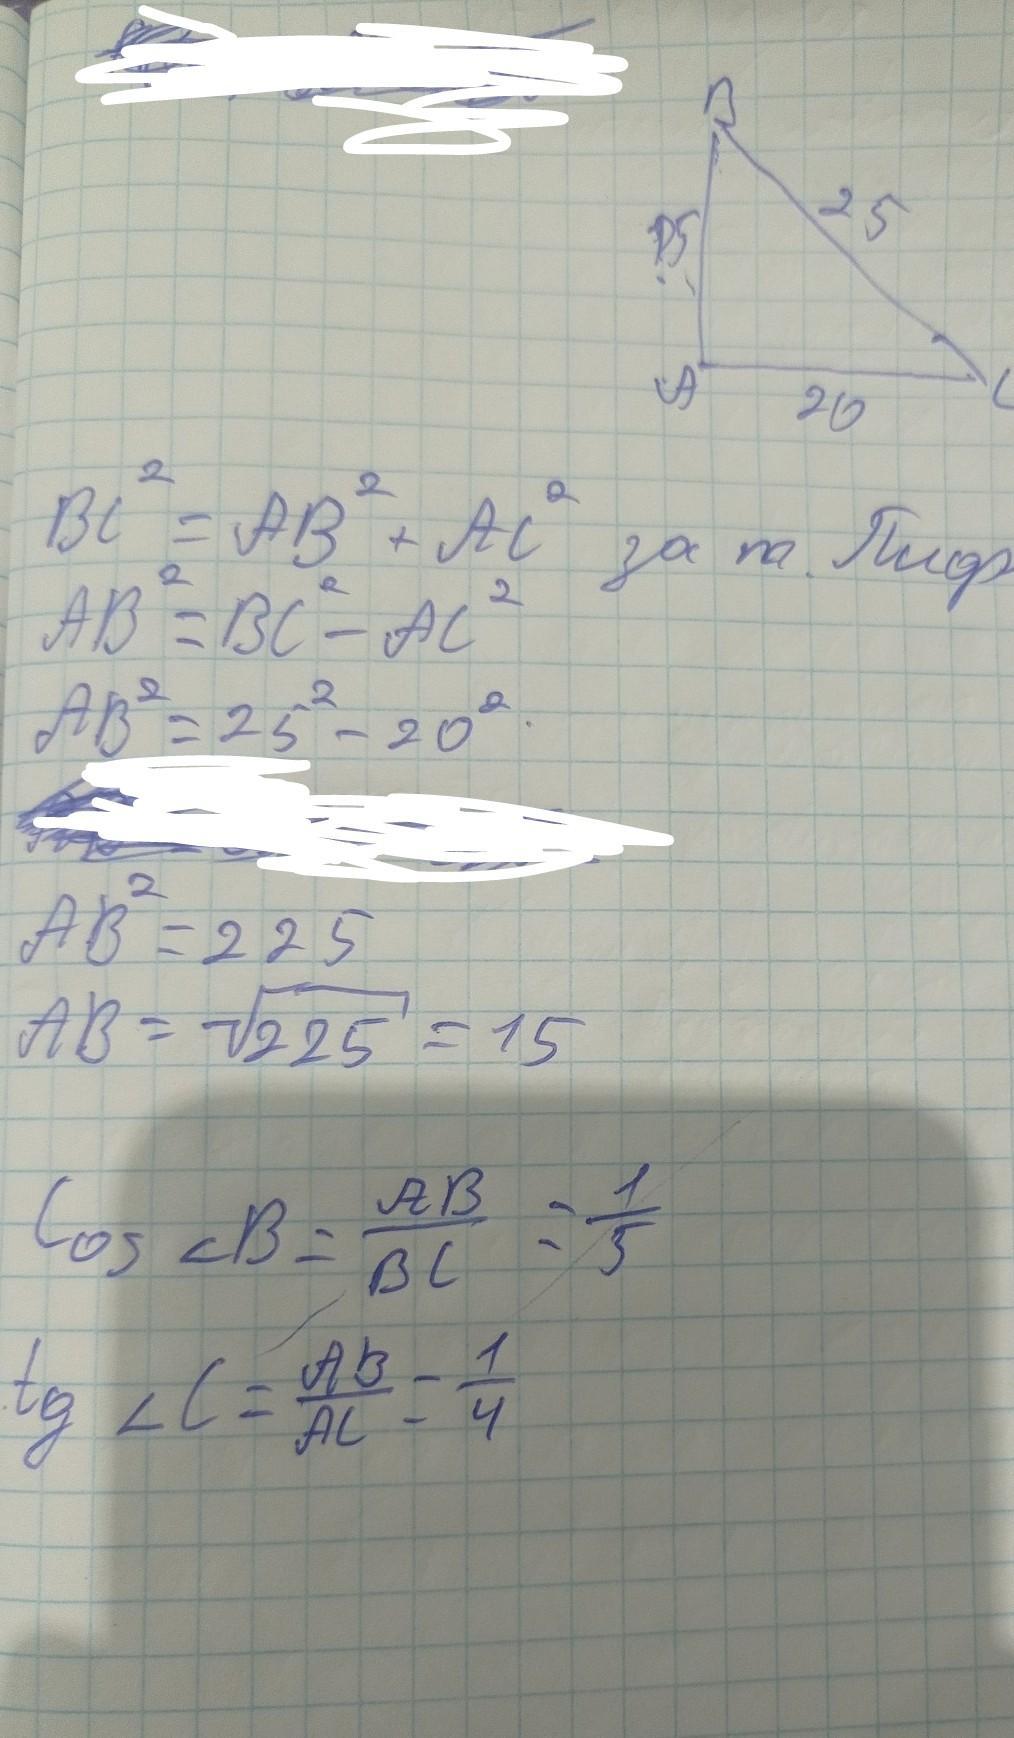 B
25
15
A
C
20
BC² = AB² + AC² за т. Піф
AB² = BC² - AC²
AB² = 25² - 20².
AB² = 225
AB = √225 = 15
Cos ∠B = AB/BC = 1/5
tg ∠C = AB/AC = 1/4